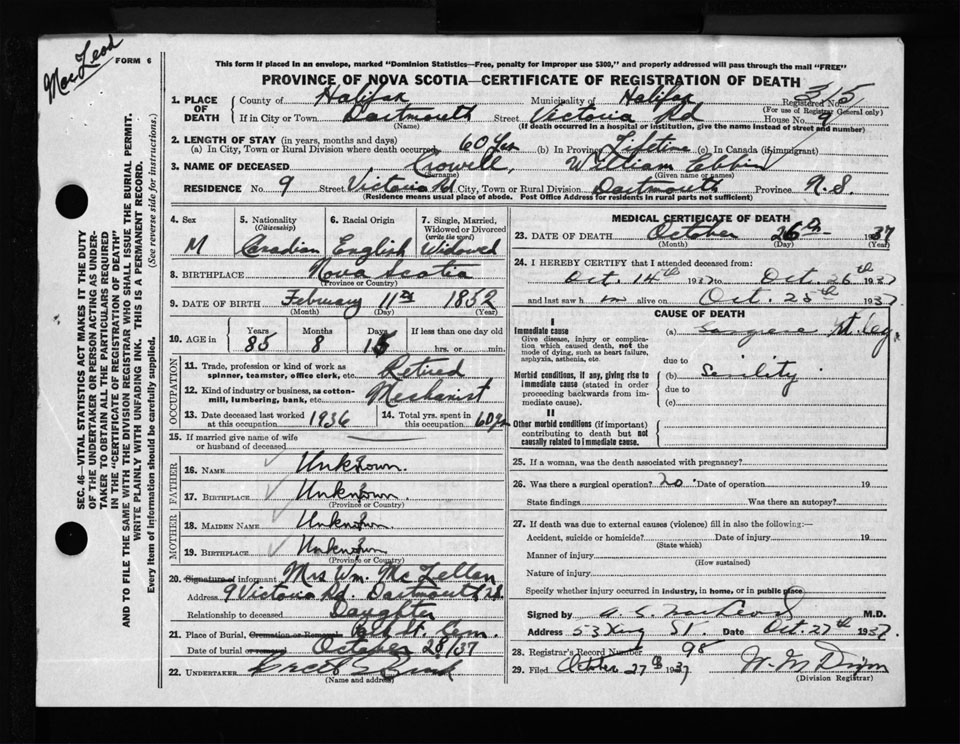 Mac Leod
FORM 6
This form if placed in an envelope, marked "Dominion Statistics—Free, penalty for improper use $300, and properly addressed will pass through the mail "FREE"
PROVINCE OF NOVA SCOTIA—CERTIFICATE OF REGISTRATION OF DEATH
315
1. PLACE OF DEATH
County of Halifax Municipality of Halifax Registered No.
(For use of Registrar General only)
If in City or Town Dartmouth Street Victoria Rd House No. 9
(Name) (If death occurred in a hospital or institution, give the name instead of street and number)
2. LENGTH OF STAY (in years, months and days)
(a) In City, Town or Rural Division where death occurred 60 Yrs (b) In Province Lifetime (c) In Canada (if immigrant)
3. NAME OF DECEASED Crowell, William
(Surname) (Given name or names)
RESIDENCE No. 9 Street Victoria Rd City, Town or Rural Division Dartmouth Province N.S.
(Residence means usual place of abode. Post Office Address for residents in rural parts not sufficient)
4. Sex M
5. Nationality (Citizenship) Canadian
6. Racial Origin English
7. Single, Married, Widowed or Divorced (write the word) Widowed
8. BIRTHPLACE Nova Scotia
(Province or Country)
9. DATE OF BIRTH February 11th 1852
(Month) (Day) (Year)
10. AGE in Years 85 Months 8 Days 15 If less than one day old hrs. or min.
OCCUPATION
11. Trade, profession or kind of work as spinner, teamster, office clerk, etc. Retired
12. Kind of industry or business, as cotton-mill, lumbering, bank, etc. Mechanist
13. Date deceased last worked at this occupation 1936
14. Total yrs. spent in this occupation 60 yrs
15. If married give name of wife or husband of deceased
FATHER
16. NAME Unknown.
17. BIRTHPLACE Unknown.
(Province or Country)
MOTHER
18. MAIDEN NAME Unknown.
19. BIRTHPLACE Unknown
(Province or Country)
20. Signature of informant Mrs Wm. McLellan
Address 9 Victoria Rd. Dartmouth N.S.
Relationship to deceased Daughter
21. Place of Burial, Cremation or Removal Cem.
Date of burial or removal October 28/37
22. UNDERTAKER
(Name and address)
MEDICAL CERTIFICATE OF DEATH
23. DATE OF DEATH October 26th 1937
(Month) (Day) (Year)
24. I HEREBY CERTIFY that I attended deceased from
Oct. 14th 1937 to Oct. 26th 1937
and last saw h im alive on Oct. 25th 1937
CAUSE OF DEATH
I
Immediate cause
Give disease, injury or complication which caused death, not the mode of dying, such as heart failure, asphyxia, asthenia, etc.
(a) Leg
due to
Morbid conditions, if any, giving rise to immediate cause (stated in order proceeding backwards from immediate cause).
(b) Senility
due to
(c)
II
Other morbid conditions (if important) contributing to death but not causally related to immediate cause.
25. If a woman, was the death associated with pregnancy?
26. Was there a surgical operation? no Date of operation 19
State findings Was there an autopsy?
27. If death was due to external causes (violence) fill in also the following:—
Accident, suicide or homicide? Date of injury 19
(State which)
Manner of injury
(How sustained)
Nature of injury
Specify whether injury occurred in industry, in home, or in public place
Signed by A. S. MacLeod M.D.
Address 53 King St. Date Oct. 27th 1937.
28. Registrar's Record Number 98
29. Filed October 27th 1937 W. M Dixon
(Division Registrar)
SEC. 46—VITAL STATISTICS ACT MAKES IT THE DUTY
OF THE UNDERTAKER OR PERSON ACTING AS UNDER-
TAKER TO OBTAIN ALL THE PARTICULARS REQUIRED
IN THE "CERTIFICATE OF REGISTRATION OF DEATH"
AND TO FILE THE SAME WITH THE DIVISION REGISTRAR WHO SHALL ISSUE THE BURIAL PERMIT.
WRITE PLAINLY WITH UNFADING INK. THIS IS A PERMANENT RECORD.
Every item of information should be carefully supplied. (See reverse side for instructions.)